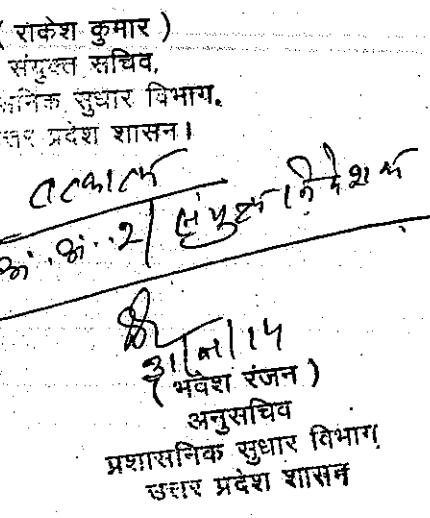 ( राकेश कुमार )
संयुक्त सचिव,
सनिक सुधार विभाग,
त्तर प्रदेश शासन।
तत्काल
संयुक्त निदेशक
( भवेश रंजन )
अनुसचिव
प्रशासनिक सुधार विभाग
उत्तर प्रदेश शासन